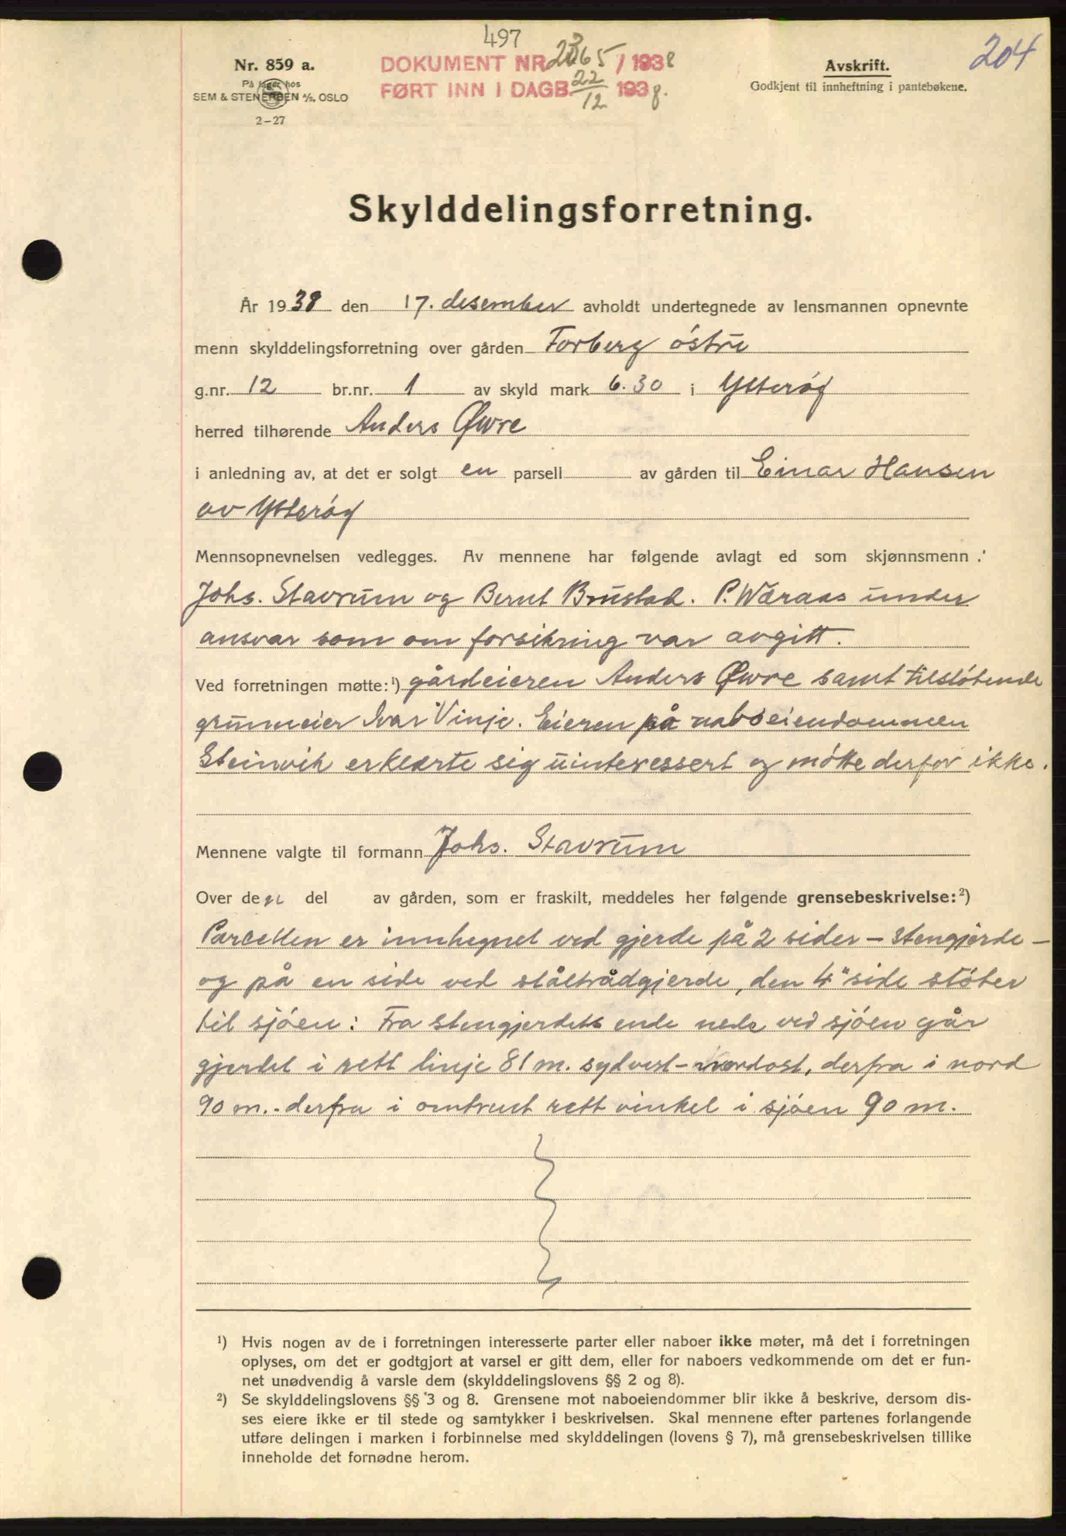 497
204
Nr. 859 a.
På lager hos
SEM & STENERSEN A/S, OSLO
2-27
DOKUMENT NR 2365/1938
FØRT INN I DAGB. 22/12 1938.
Avskrift.
Godkjent til innheftning i pantebøkene.
Skylddelingsforretning.
År 1938 den 17. desember avholdt undertegnede av lensmannen opnevnte
menn skylddelingsforretning over gården Forberg østre
g.nr. 12 br.nr. 1 av skyld mark 6.30 i Ytterøy
herred tilhørende Anders Øwre
i anledning av, at det er solgt en parsell av gården til Einar Hansen
av Ytterøy
Mennsopnevnelsen vedlegges. Av mennene har følgende avlagt ed som skjønnsmenn:
Johs. Stavrum og Bernt Brustad. P. Wæraas under
ansvar som om forsikring var avgitt.
Ved forretningen møtte:¹) gårdeieren Anders Øwre samt tilstøtende
grunneier Ivar Vinje. Eieren på naboeiendommen
Steinvik erklærte sig uinteressert og møtte derfor ikke.
Mennene valgte til formann Johs. Stavrum
Over den del av gården, som er fraskilt, meddeles her følgende grensebeskrivelse:²)
Parcellen er innhegnet ved gjerde på 2 sider – stengjerde –
og på en side ved ståltrådgjerde, den 4" side støter
til sjøen: Fra stengjerdets ende nede ved sjøen går
gjerdet i rett linje 81 m. sydvest – nordost, derfra i nord
90 m. - derfra i omtrent rett vinkel i sjøen 90 m.
¹) Hvis nogen av de i forretningen interesserte parter eller naboer ikke møter, må det i forretningen
oplyses, om det er godtgjort at varsel er gitt dem, eller for naboers vedkommende om det er fun-
net unødvendig å varsle dem (skylddelingslovens §§ 2 og 8).
²) Se skylddelingslovens §§ 3 og 8. Grensene mot naboeiendommer blir ikke å beskrive, dersom dis-
ses eiere ikke er til stede og samtykker i beskrivelsen. Skal mennene efter partenes forlangende
utføre delingen i marken i forbinnelse med skylddelingen (lovens § 7), må grensebeskrivelsen tillike
inneholde det fornødne herom.